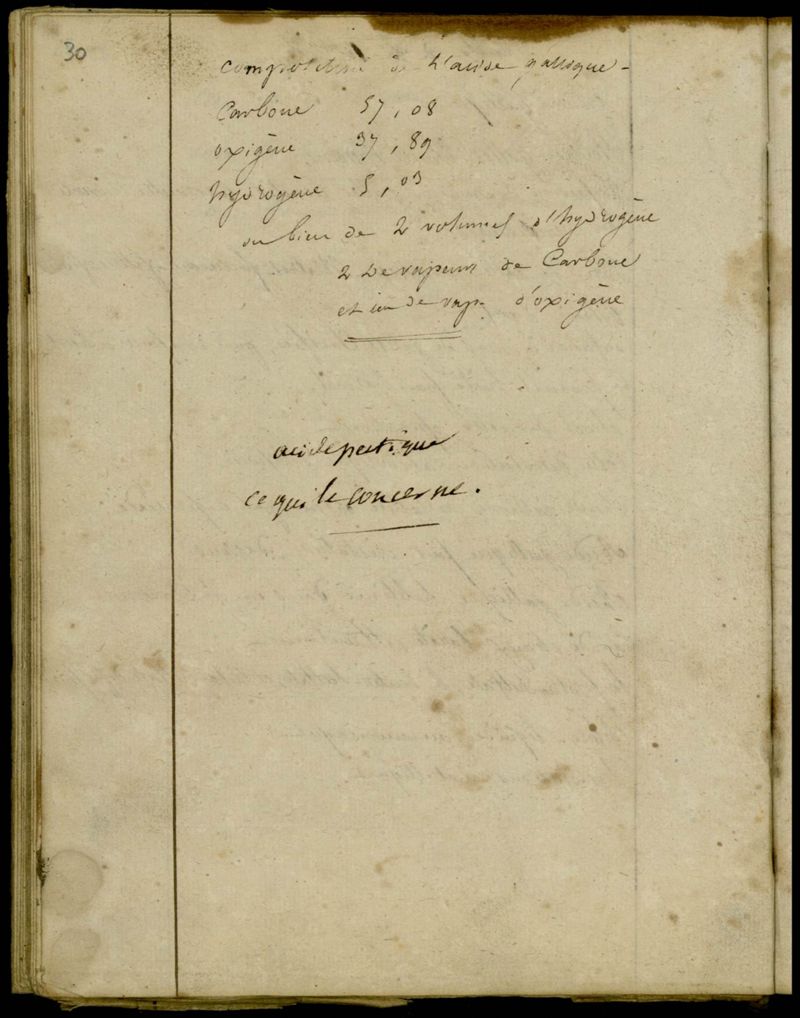 30
Composition de L'acide gallique -
Carbone 57,08
oxigène 37,89
hydrogène 5,03
ou bien de 2 volumes d'hydrogène
2 de vapeurs de Carbone
et un de vap. d'oxigène
acide pectique
ce qui le concerne.